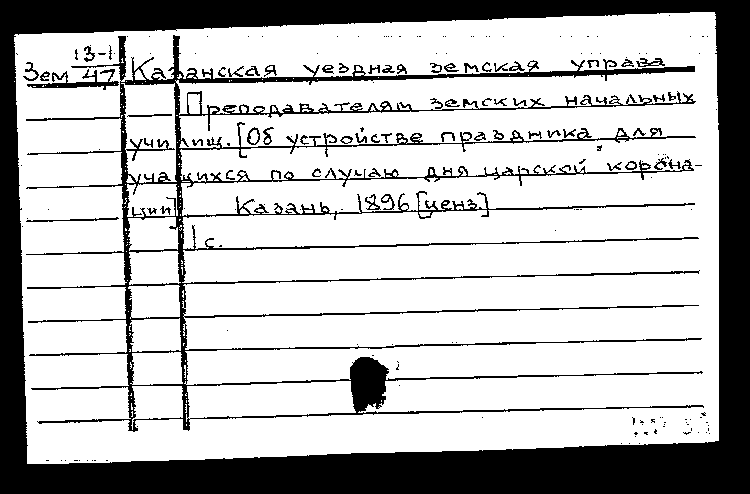 13-1
Зем 47 Казанская уездная земская управа
Преподавателям земских начальных
училищ. [Об устройстве праздника для
учащихся по случаю дня царской корона-
ции] Казань, 1896 [ценз.]
1 с.